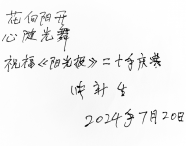 花向阳开
心随光舞
祝福《阳光报》二十年庆寿
2024年7月20日